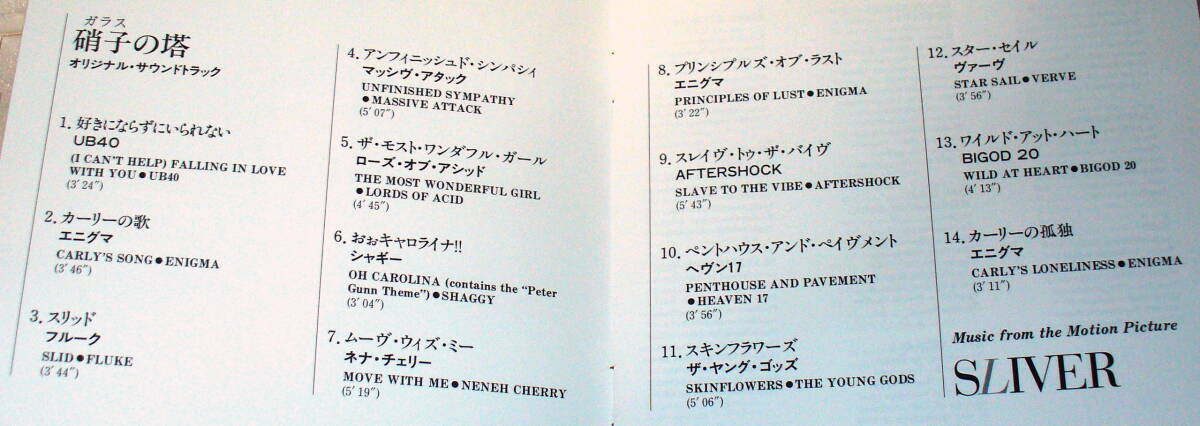 ガラス
硝子の塔
オリジナル・サウンドトラック
1. 好きにならずにいられない
UB40
(I CAN'T HELP) FALLING IN LOVE
WITH YOU●UB40
(3′24″)
2. カーリーの歌
エニグマ
CARLY'S SONG●ENIGMA
(3′46″)
3. スリッド
フルーク
SLID●FLUKE
(3′44″)
4. アンフィニッシュド・シンパシィ
マッシヴ・アタック
UNFINISHED SYMPATHY
●MASSIVE ATTACK
(5′07″)
5. ザ・モスト・ワンダフル・ガール
ローズ・オブ・アシッド
THE MOST WONDERFUL GIRL
●LORDS OF ACID
(4′45″)
6. おぉキャロライナ!!
シャギー
OH CAROLINA (contains the “Peter
Gunn Theme”)●SHAGGY
(3′04″)
7. ムーヴ・ウィズ・ミー
ネナ・チェリー
MOVE WITH ME●NENEH CHERRY
(5′19″)
8. プリンシプルズ・オブ・ラスト
エニグマ
PRINCIPLES OF LUST●ENIGMA
(3′22″)
9. スレイヴ・トゥ・ザ・バイヴ
AFTERSHOCK
SLAVE TO THE VIBE●AFTERSHOCK
(5′43″)
10. ペントハウス・アンド・ペイヴメント
ヘヴン17
PENTHOUSE AND PAVEMENT
●HEAVEN 17
(3′56″)
11. スキンフラワーズ
ザ・ヤング・ゴッズ
SKINFLOWERS●THE YOUNG GODS
(5′06″)
12. スター・セイル
ヴァーヴ
STAR SAIL●VERVE
(3′56″)
13. ワイルド・アット・ハート
BIGOD 20
WILD AT HEART●BIGOD 20
(4′13″)
14. カーリーの孤独
エニグマ
CARLY'S LONELINESS●ENIGMA
(3′11″)
Music from the Motion Picture
SLIVER